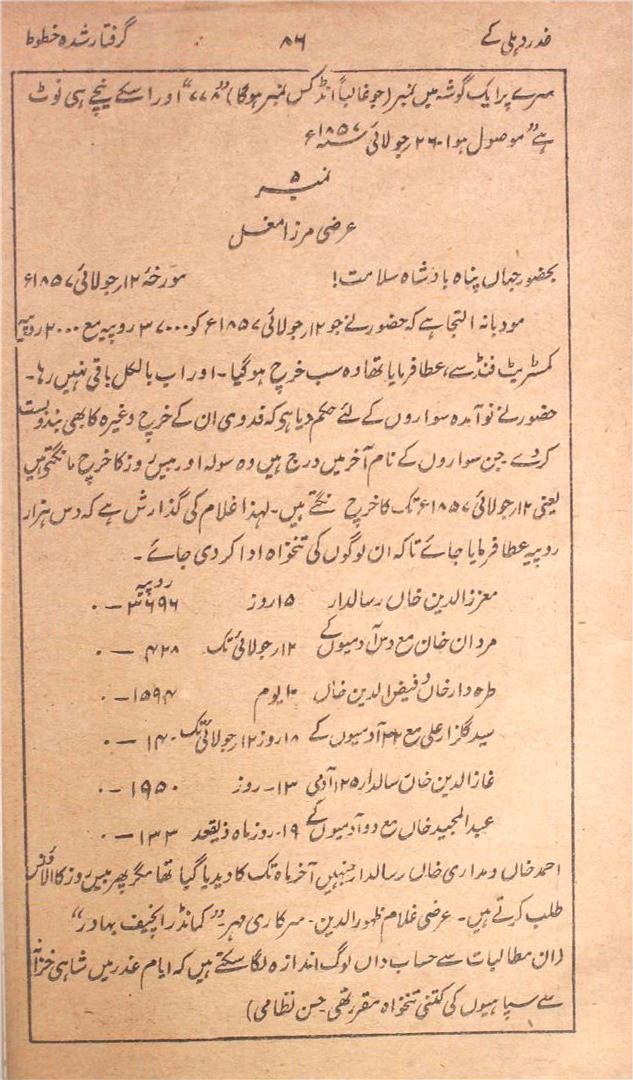 غدر دہلی کے ۸۶ گرفتار شدہ خطوط
سرے پر ایک گوشہ میں نمبر (جو غالباً انڈکس نمبر ہوگا) "۷۷۸" اور اسکے نیچے ہی نوٹ
ہے "موصول ہوا۔ ۲۶ جولائی ۱۸۵۷ء
نمبر ۵
عرضی مرزا مغل
بحضور جہاں پناہ بادشاہ سلامت! مورخہ ۱۲ جولائی ۱۸۵۷ء
مودبانہ التجا ہے کہ حضور نے جو ۱۲ جولائی ۱۸۵۷ء کو ۳۷۰۰۰ روپیہ مع ۲۰۰۰ روپیہ
کمسٹریٹ فنڈ سے، عطا فرمایا تھا وہ سب خرچ ہوگیا۔ اور اب بالکل باقی نہیں رہا۔
حضور نے نو آمدہ سواروں کے لئے حکم دیا ہی کہ فدوی ان کے خرچ وغیرہ کا بھی بندوبست
کردے جن سواروں کے نام آخر میں درج ہیں وہ سولہ اور بیس روز کا خرچ مانگتے ہیں
یعنی ۱۲ جولائی ۱۸۵۷ء تک کا خرچ مانگتے ہیں۔ لہذا غلام کی گذارش ہے کہ دس ہزار
روپیہ عطا فرمایا جائے تاکہ ان لوگوں کی تنخواہ ادا کر دی جائے۔
معزز الدین خاں رسالدار ۱۵ روز روپیہ ۳۶۹۶ — ۰
مردان خان مع دس آدمیوں کے ۱۲ جولائی تک ۴۲۸ — ۰
طرہ دار خاں و فیض الدین خاں ۱۰ یوم ۱۵۹۴ — ۰
سید گلزار علی مع ۲۶ آدمیوں کے ۱۸ روز ۱۲ جولائی تک ۱۴۰ — ۰
غاز الدین خاں سالدار ۱۲۵ آدمی ۱۳۔ روز ۱۹۵۰ — ۰
عبد المجید خاں مع دو آدمیوں کے ۱۹۔ روز ماہ ذیقعد ۱۳۳ — ۰
احمد خاں و مداری خاں رسالدار جنہیں آخر ماہ تک کا دیدیا گیا تھا مگر پھر بیس روز کا الاؤنس
طلب کرتے ہیں۔ عرضی غلام ظہور الدین۔ سرکاری مہر۔ "کمانڈر انچیف بہادر"
(ان مطالبات سے حساب داں لوگ اندازہ لگا سکتے ہیں کہ ایام غدر میں شاہی خزانہ
سے سپاہیوں کی کتنی تنخواہ مقرر تھی۔ حسن نظامی)